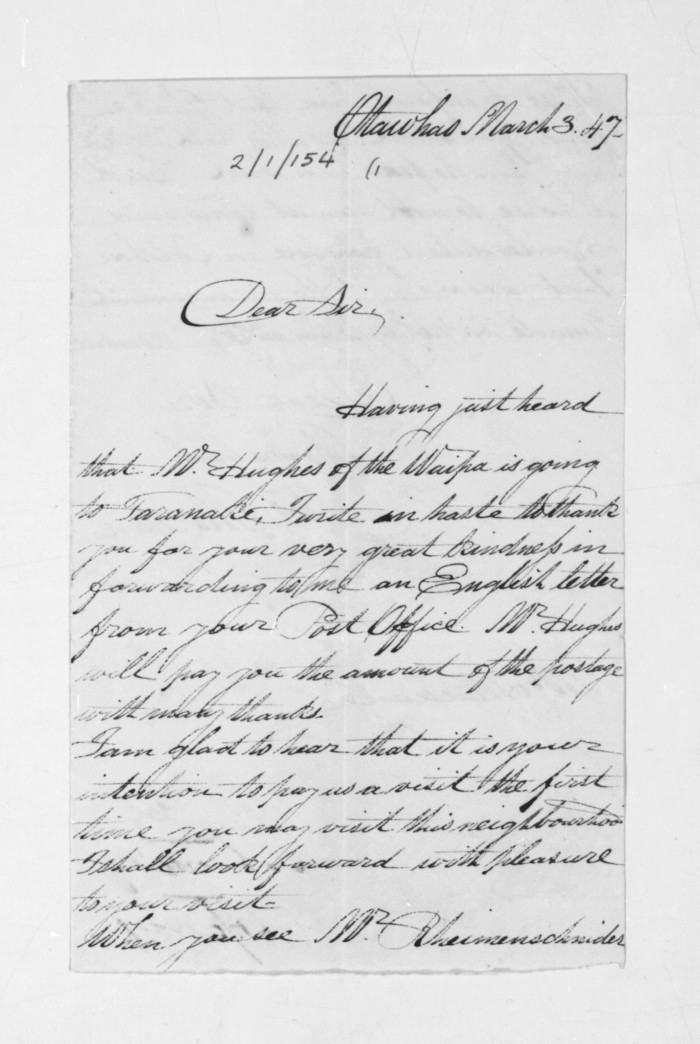 Otawhao March 3. 47
2/1/154 (1
Dear Sir,
Having just heard
that Mr. Hughes of the Waipa is going
to Taranake, I write in haste to thank
you for your very great kindness in
forwarding to me an English letter
from your Post Office. Mr. Hughes
will pay you the amount of the postage
with many thanks.
I am glad to hear that it is your
intention to pay us a visit the first
time you may visit this neighbourhoo
I shall look forward with pleasure
to your visit.
When you see Mr. Rheimenschnider